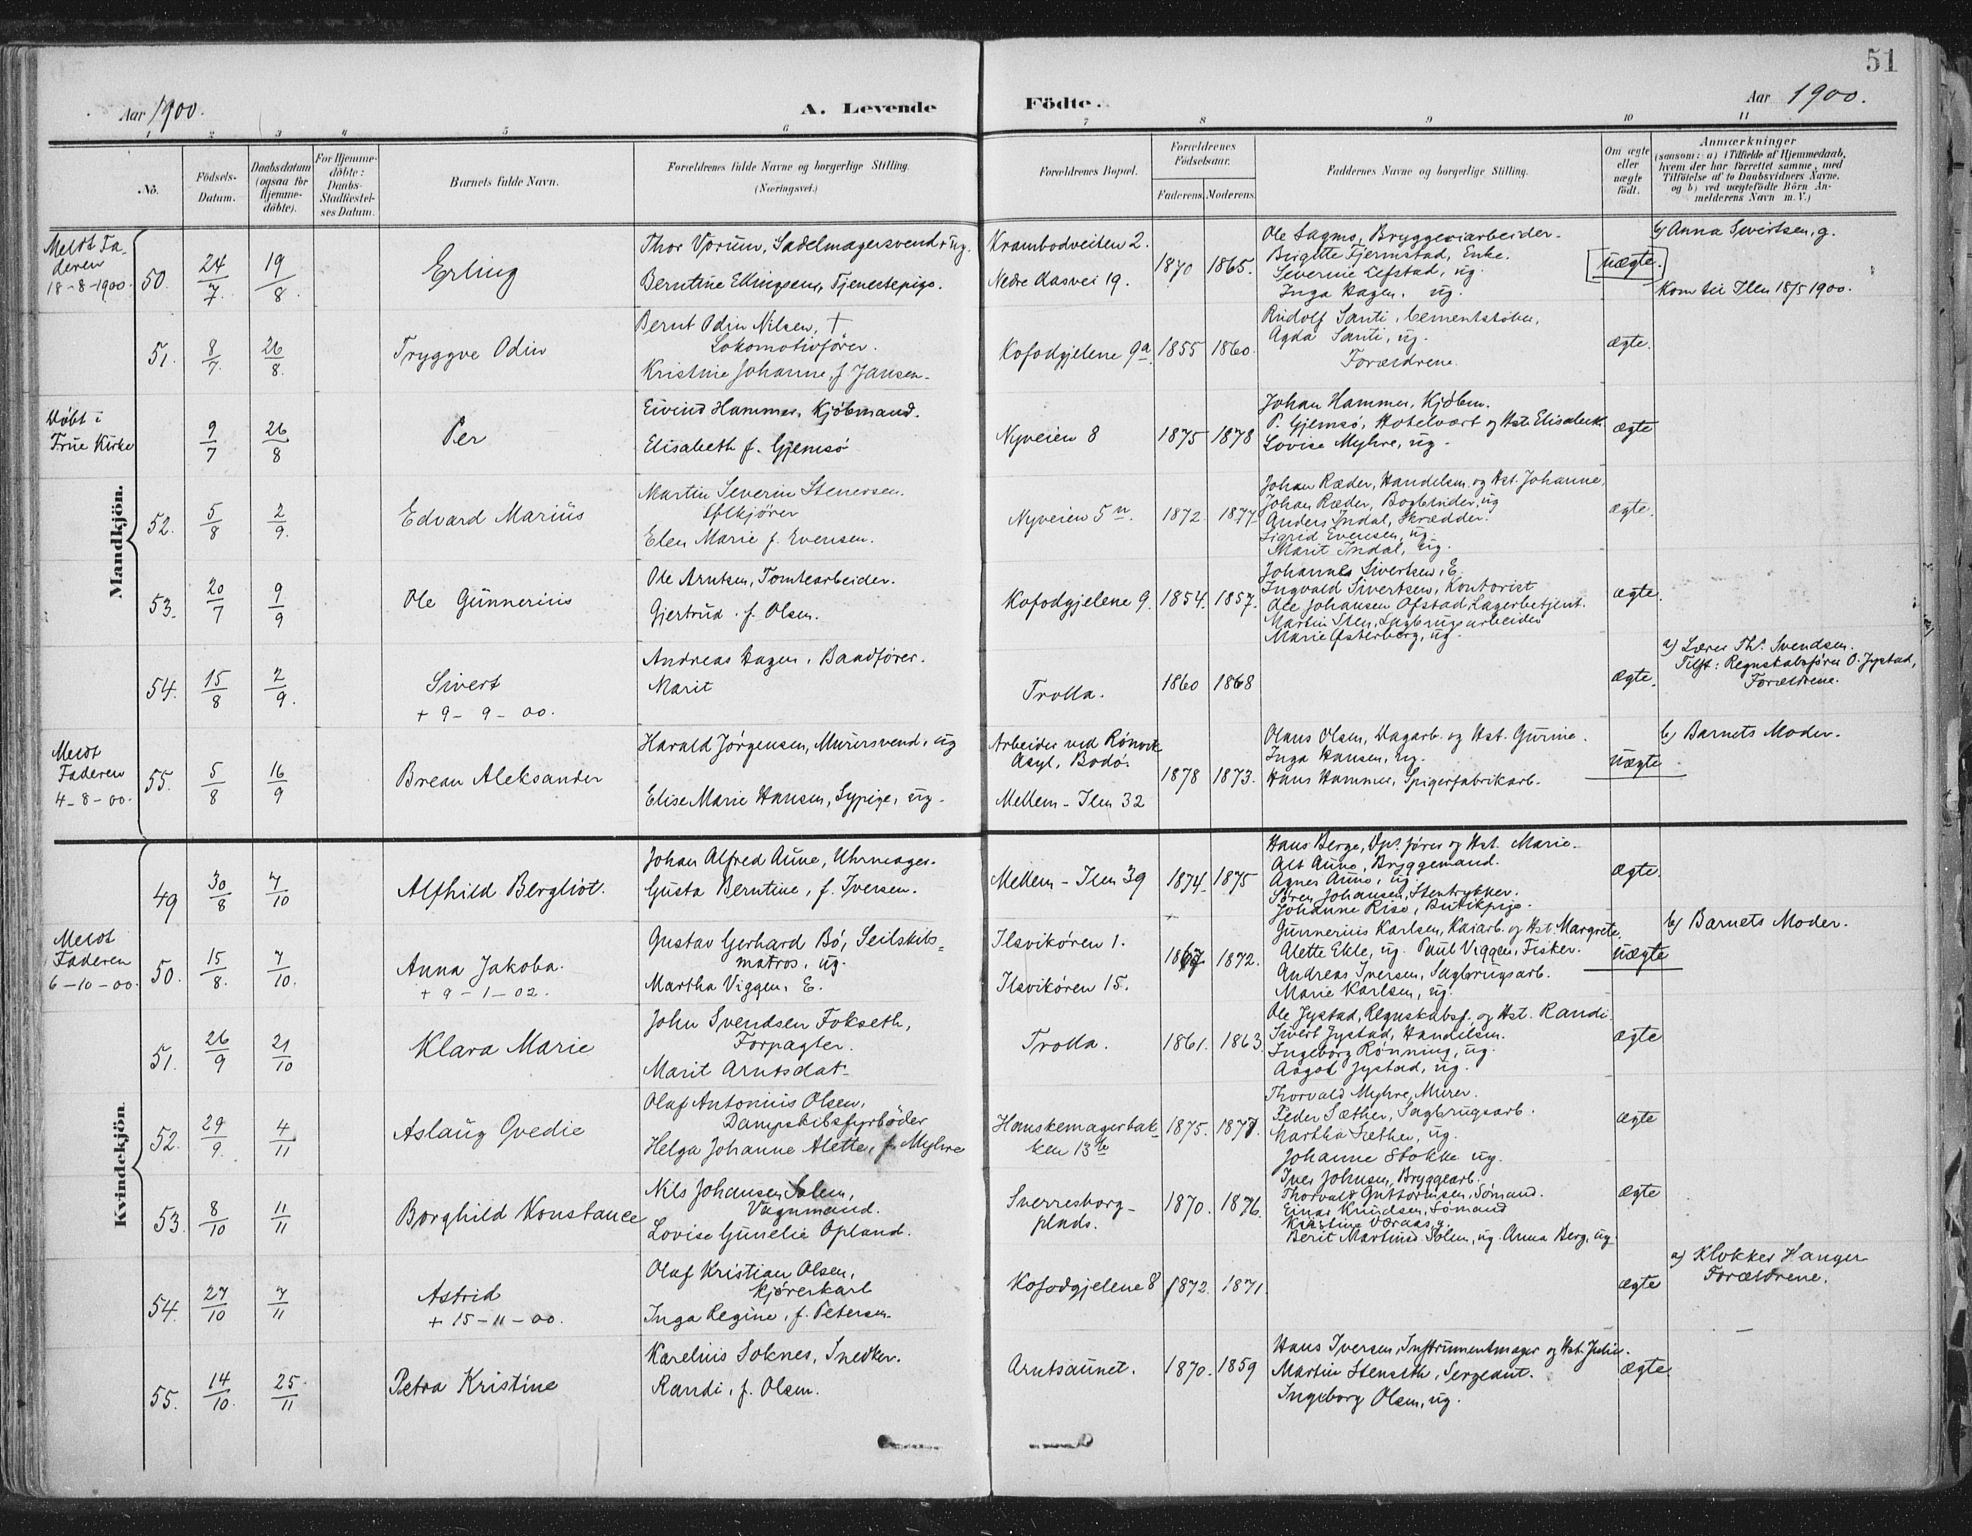 51
Aar 1900.
A. Levende Födte.
Aar 1900.
1 2 3 4 5 6 7 8 9 10 11
No.
Födsels-Datum.
Daabsdatum (ogsaa for Hjemme-döbte).
For Hjemme-döbte: Daabs-Stadfæstel-ses Datum.
Barnets fulde Navn.
Forældrenes fulde Navne og borgerlige Stilling.
(Næringsvei.)
Forældrenes Bopæl.
Forældrenes Födselsaar.
Faderens. Moderens.
Faddernes Navne og borgerlige Stilling.
Om ægte eller uægte födt.
Anmærkninger
(saasom: a) i Tilfælde af Hjemmedaab, hvem der har forrettet samme, med Tilföielse af to Daabsvidners Navne, og b) ved uægtefödte Börn An-melderens Navn m. V.)
Mandkjön.
Meldt Fa-
deren
18-8-1900.
50. 24/7 19/8 Erling
Thor Vorum, Sadelmagersvend, ug.
Berntine Ellingsen, Tjenestepige.
Krambodveiten 2.
Nedre Aasvei 19.
1870 1865.
Ole Sagmo, Bryggeriarbeider.
Birgitte Fjermstad, Enke.
Severine Lefstad, ug.
Inga Hagen, ug.
uægte.
b) Anna Sivertsen, g.
Kom til Ilen 18/5 1900.
51. 8/7. 26/8. Tryggve Odin
Bernt Odin Nilsen, †
Lokomotivfører.
Kristine Johanne, f. Jansen.
Kofodgjelene 9a. 1855 1860.
Rudolf Santi, Cementstøber,
Agda Santi, ug.
Forældrene.
ægte.
Døbt i
Frue Kirke
9/7 26/8 Per
Eivind Hammer, Kjøbmand.
Elisabeth f. Gjemsö
Nyveien 8 1875 1878
Johan Hammer, Kjøbm.
P. Gjemsö, Hotelvært og Hst. Elisabeth.
Lovise Myhre, ug.
ægte
52. 5/8 2/9. Edvard Marius
Martin Severin Stenersen.
Ølkjører
Elen Marie f. Evensen.
Nyveien 5 1872. 1877.
Johan Ræder, Handelsm. og Hst. Johanne,
Johan Ræder, Bogbinder, ug
Anders Indal, Skrædder.
Sigrid Evensen, ug.
Marit Indal, ug.
ægte.
53. 20/7 9/9 Ole Gunnerius
Ole Arntsen, Tomtearbeider.
Gjertrud. f. Olsen.
Kofodgjelene 9. 1854. 1857.
Johannes Sivertsen, E.
Ingvald Sivertsen, Kontorist
Ole Johansen Ofstad, Lagerbetjent.
Martin Sten, Sagbrugsarbeider
Marie Østerberg, ug.
ægte.
54. 15/8 2/9. Sivert
+ 9-9-00.
Andreas Hagen, Baadfører.
Marit
Trolla. 1860 1868
ægte.
a) Lærer Th. Svendsen.
Tilst: Regnskabsfører O. Jystad,
Forældrene.
Meldt
Faderen
4-8-00.
55. 5/8 16/9 Brean Aleksander
Harald Jørgensen, Murersvend, ug
Elise Marie Hansen, Sypige, ug.
Arbeider ved Rønvik
Asyl, Bodø.
Mellem-Ilen 32
1878 1873.
Olaus Olsen, Dagarb. og Hst. Gurine.
Inga Hansen, ug.
Hans Hammer, Spigerfabrikarb.
uægte
b) Barnets Moder.
Kvindekjön.
49 30/8 7/10 Alfhild Bergliot.
Johan Alfred Aune, Uhrmager.
Gusta Berntine, f. Iversen.
Mellem-Ilen 39 1874. 1875
Hans Berge, Dps.fører og Hst. Marie.
Alt Auno, Bryggemand.
Agnes Auno, ug.
Søren Johansen, Stentrykker.
Johanne Rise, Butikpige.
ægte.
Meldt
Faderen
6-10-00.
50. 15/8. 7/10. Anna Jakoba.
+ 9-1-02.
Gustav Gerhard Bö, Seilskibs-
matros, ug.
Martha Viggen, E.
Ilsvikören 1.
Ilsvikören 15.
1872.
Gunnerius Karlsen, Kaiarb. og Hst. Margrete.
Alette Ekle, ug. Paul Viggen, Fisker.
Andreas Iversen, Sagbrugsarb.
Marie Karlsen, ug.
uægte
b) Barnets Moder.
51. 26/9 21/10 Klara Marie
John Svendsen Fokseth,
Forpagter.
Marit Arntsdat.
Trolla. 1861. 1863.
Ole Jystad, Regnskabsf. og Hst. Randi.
Sivert Jystad, Handelsm.
Ingeborg Rønning, ug.
Aagot Jystad, ug.
ægte
52. 29/9. 4/11 Aslaug Ovedie
Olaf Antonius Olsen,
Dampskibsfyrböder
Helga Johanne Alette, f. Myhre
Hanskemagerbak-
ken 13b
1875. 1877.
Thorvald Myhre, Murer.
Peder Sæther, Sagbrugsarb.
Martha Sæther, ug.
Johanne Stokke ug.
ægte
53. 8/10 11/11 Borghild Konstance
Nils Johansen Solem,
Vognmand.
Lovise Gunelie Opland.
Sverresborg-
plads.
1870. 1876.
Iver Johnsen, Bryggearb.
Thorvald Guttormsen, Sømand.
Einar Knudsen, Sømand
Kristine Væraas, g.
Berit Martine Solem, ug. Anna Berg, ug
ægte
54. 27/10 7/11 Astrid
+ 15-11-00.
Olaf Kristian Olsen,
Kjørerkarl
Inga Regine, f. Petersen.
Kofodgjelene 8 1872. 1871.
ægte
a) Klokker Hanger
Forældrene.
55. 14/10. 25/11 Petra Kristine
Karelius Soknes, Snedker.
Randi, f. Olsen.
Arntsaunet. 1870. 1859
Hans Iversen, Instrumentmager og Hst. Julie.
Martin Stenseth, Sergeant.
Ingeborg Olsen, ug.
ægte.